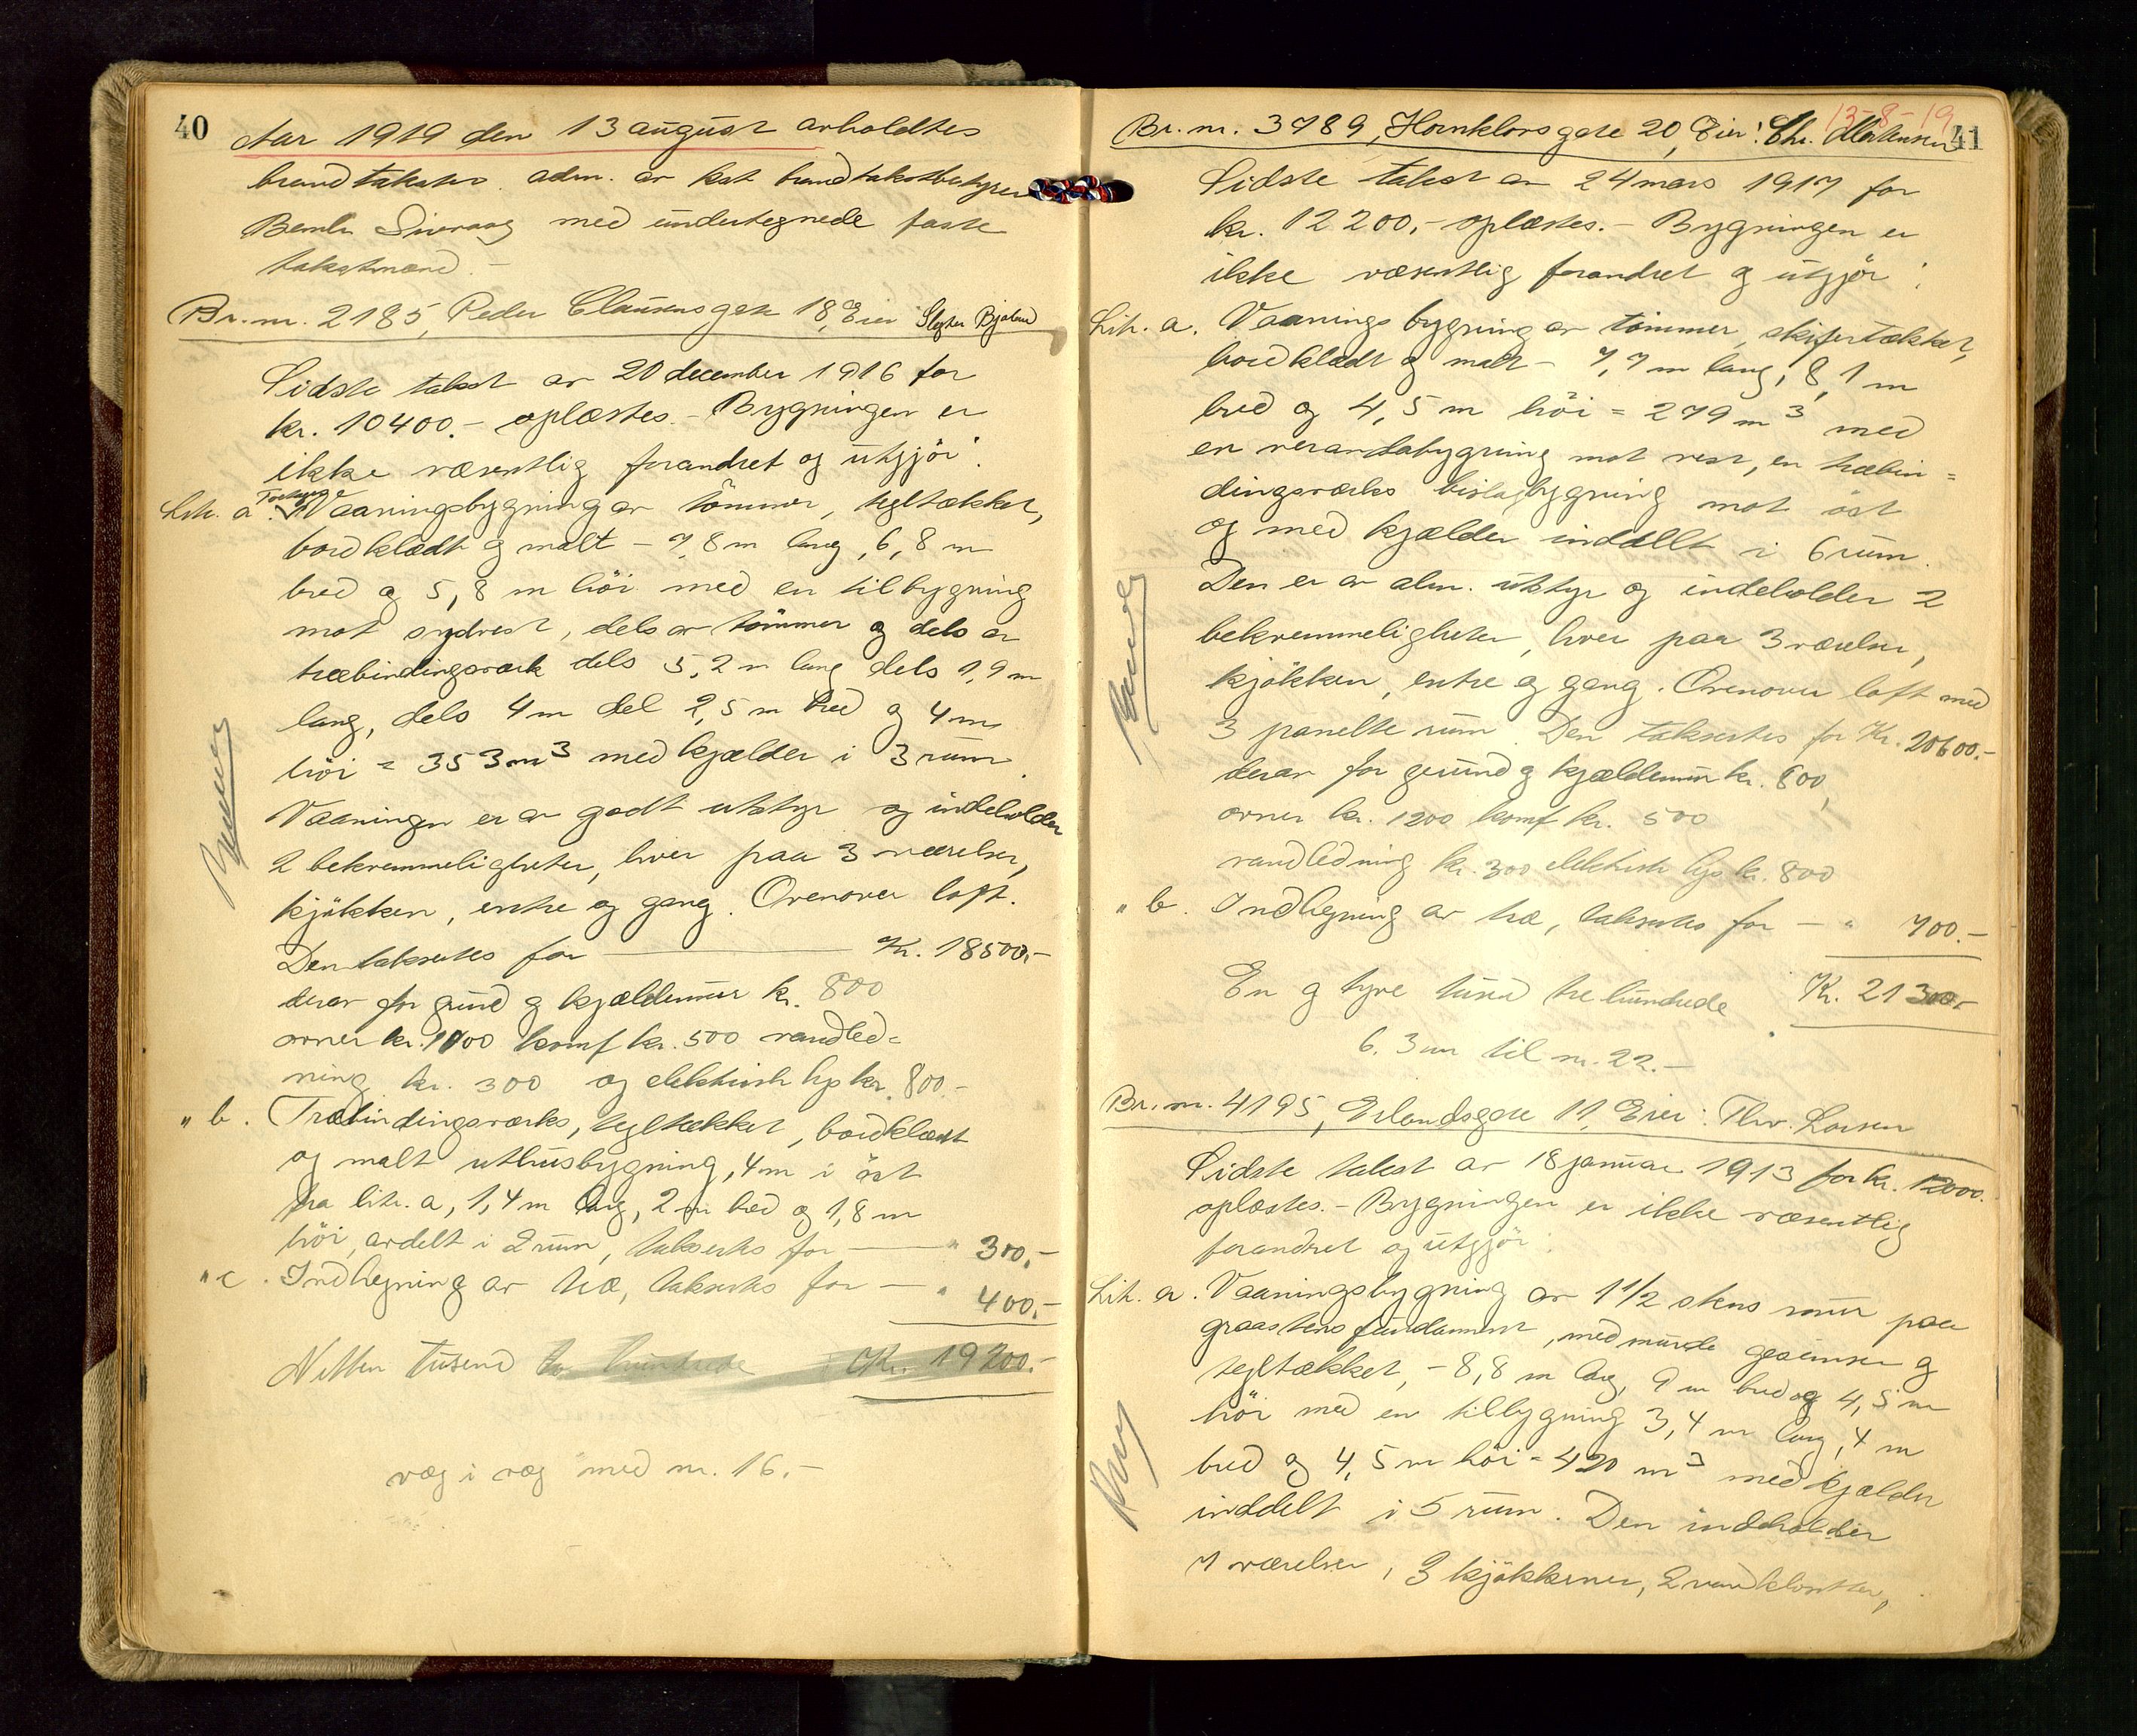 40
Aar 1919 den 13 august avholdtes
brandtakster adm. av kst brandtakstbestyrer
Bernh. med undertegnede faste
takstmænd.-
Br. nr. 2185, Peder Claussens gate 18, Eier Bjaland
Sidste takst av 20 december 1916 for
kr. 10400.- oplæstes.- Bygningen er
ikke væsentlig forandret og utgjör:
Lit. a. Vaaningsbygning av tömmer, tegltækket,
bordklædt og malt - 7,8 m lang, 6,8 m
bred og 5,8 m höi med en tilbygning
mot sydvest, dels av tömmer og dels av
træbindingsværk dels 5,2 m lang dels 1,9 m
lang, dels 4 m del 2,5 m bred og 4 m
höi = 353 m3 med kjælder i 3 rum.
Vaaningen er av godt utstyr og indeholder
2 bekvemmeligheter, hver paa 3 værelser,
kjökken, entre og gang. Ovenover loft.
Den takseres for Kr. 18500,-
derav for grund og kjældermur kr. 800
ovner kr. 1000 komf kr. 500 vandled=
ning kr. 300 og elektrisk lys kr. 800.-
" b. Træbindingsværks, tegltækket, bordklædt
og malt uthusbygning, 4 m i öst
fra lit. a, 1,4 m lang, 2 m bred og 1,8 m
höi, avdelt i 2 rum, takseres for — " 300,-
" c. Indhegning av træ, takseres for — " 400,-
Nitten tusend to hundrede Kr. 19200.-
væg i væg med nr. 16.-
13-8-19
41
Br. nr. 3789, Hornklovs gate 20, Eier: Chr. Mortensen
Sidste takst av 24 mars 1917 for
kr. 12200,- oplæstes.- Bygningen er
ikke væsentlig forandret og utgjör:
Lit. a. Vaaningsbygning av tömmer, skifertækket,
bordklædt og malt - 7,7 m lang, 8,1 m
bred og 4,5 m höi = 279 m3 med
en verandabygning mot vest, en træbin=
dingsværks bislagbygning mot öst
og med kjælder inddelt i 6 rum.
Den er av alm. utstyr og indeholder 2
bekvemmeligheter, hver paa 3 værelser,
kjökken, entre og gang. Ovenover loft med
3 panelte rum. Den takseres for Kr. 20600.-
derav for grund og kjældermur kr. 800,
ovner kr. 1200 komf kr. 500
vandledning kr. 300 elektrisk lys kr. 800
" b. Indhegning av træ, takseres for — " 700.-
En og tyve tusen tre hundrede Kr. 21300,-
6.3 m til nr. 22.-
Br. nr. 4195, Erlandsgate 11, Eier: Thv. Larsen
Sidste takst av 18 januar 1913 for kr. 12000.
oplæstes.- Bygningen er ikke væsentlig
forandret og utgjör:
Lit. a. Vaaningsbygning av 1 1/2 stens mur paa
graastens fundament, med murede gesimser og
tegltækket, - 8,8 m lang, 9 m bred og 4,5 m
höi med en tilbygning 3,4 m lang, 4 m
bred og 4,5 m höi = 420 m3 med kjælder
inddelt i 5 rum. Den indeholder
7 værelser, 3 kjökkener, 2 vandklosetter,